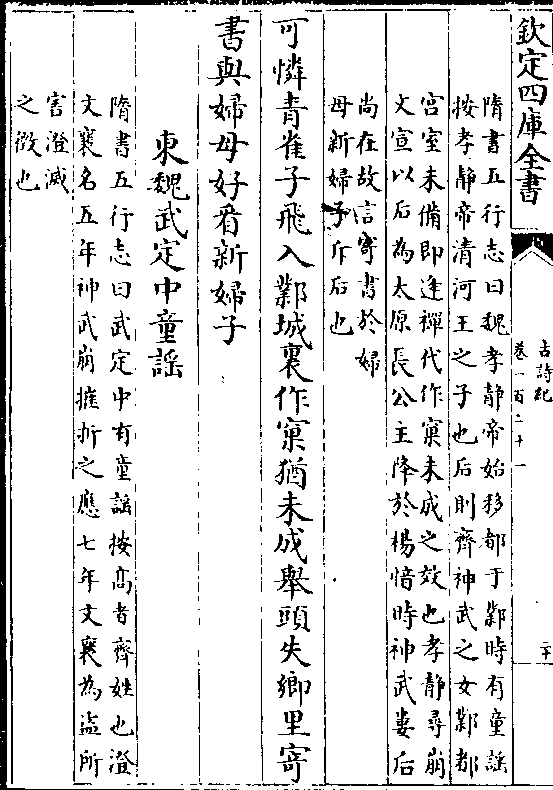 欽定四庫全書
古詩紀
卷一百二十一
二十
隋書五行志曰魏孝靜帝始移都于鄴時有童謡
按孝靜帝清河王之子也后則齊神武之女鄴都
宫室未備即逢禪代作窠未成之效也孝靜尋崩
文宣以后為太原長公主降於楊愔時神武婁后
尚在故言寄書於婦
母新婦子斥后也
可憐青雀子飛入鄴城裏作窠猶未成舉頭失鄉里寄
書與婦母好看新婦子
東魏武定中童謡
隋書五行志曰武定中有童謡按髙者齊姓也澄
文襄名五年神武崩摧折之應七年文襄為盜所
害澄滅
之徴也